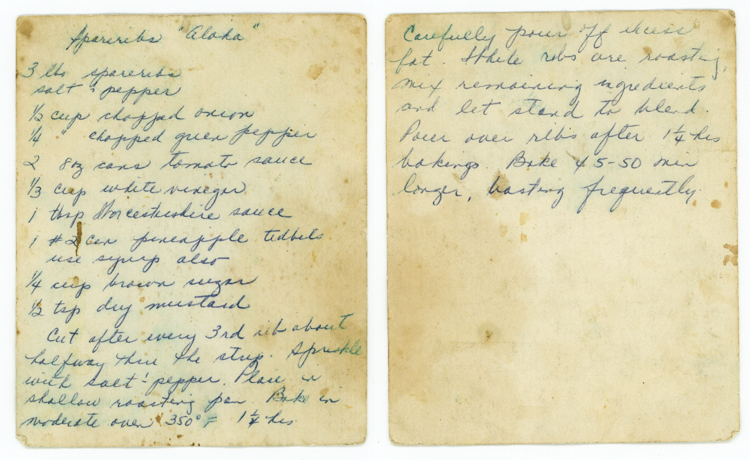 Spareribs "Aloha"
3 lbs spareribs
salt & pepper
1/2 cup chopped onion
1/4 " chopped green pepper
2 8oz cans tomato sauce
1/3 cup white vinegar
1 tbsp Worcestershire sauce
1 #2 can pineapple tidbits
use syrup also
1/4 cup brown sugar
1/2 tsp dry mustard
Cut after every 3rd rib about
halfway thru the strip. Sprinkle
with salt & pepper. Place in
shallow roasting pan Bake in
moderate oven 350° F 1 1/4 hrs
Carefully pour off excess
fat. While ribs are roasting,
mix remaining ingredients
and let stand to blend.
Pour over ribs after 1 1/4 hrs
bakings. Bake 45-50 min
longer, basting frequently